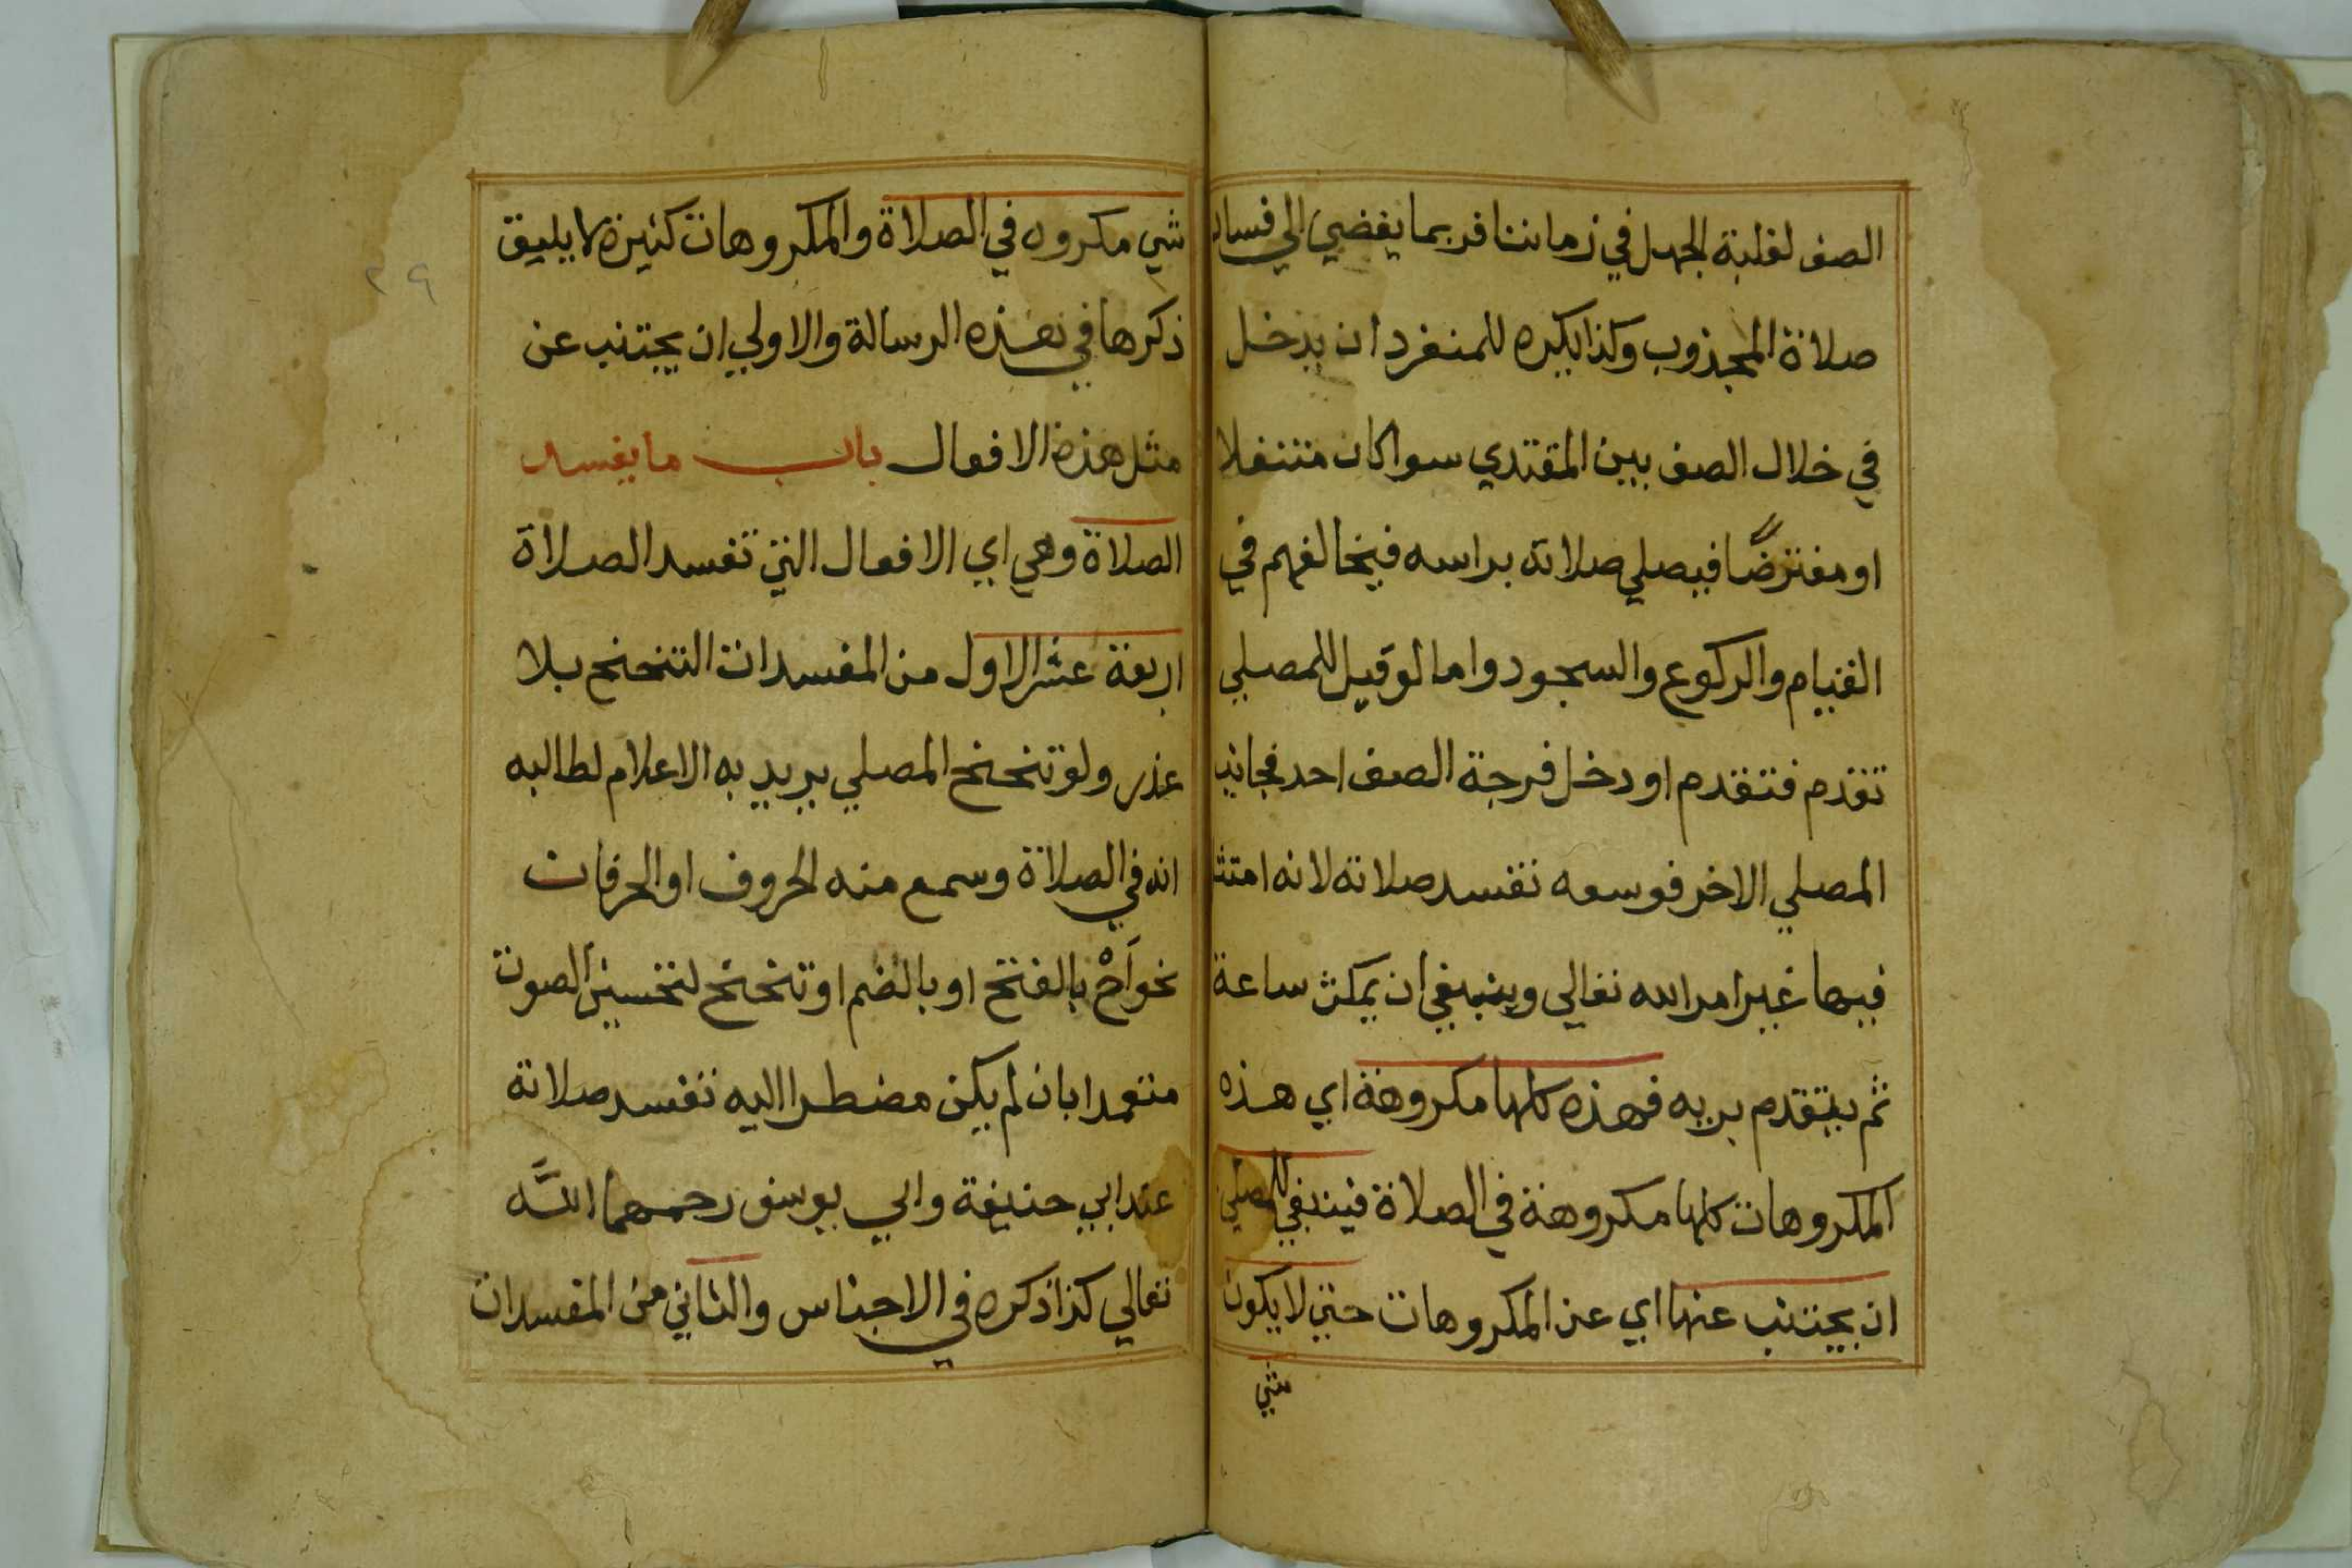 الصف لغلبة الجهل في زماننا فربما يفضي الي فساد
صلاة المجذوب وكذا يكره للمنفرد ان يدخل
في خلال الصف بين المقتدي سوا كان متنفلا
او مفترضًا فيصلي صلاته براسه فيخالفهم في
القيام والركوع والسجود واما لو قيل للمصلي
تقدم فتقدم او دخل فرجة الصف احد فجانب
المصلي الاخر فوسعه تفسد صلاته لانه امتثل
فيها غير امر الله تعالى وينبغي ان يمكث ساعة
ثم يتقدم بريه فهذه كلها مكروهة اي هذه
المكروهات كلها مكروهة في الصلاة فينبغي للمصلي
ان يجتنب عنها اي عن المكروهات حتى لا يكون
شي
شي مكروه في الصلاة والمكروهات كثيرة لا يليق
ذكرها في هذه الرسالة والاولي ان يجتنب عن
مثل هذه الافعال باب ما يفسد
الصلاة وهي اي الافعال التي تفسد الصلاة
اربعة عشر الاول من المفسدات التنحنح بلا
عذر ولو تنحنح المصلي يريد به الاعلام لطالبه
انه في الصلاة وسمع منه الحروف او الحرفان
نحو اَحْ بالفتح او بالضم او تنحنح لتحسين الصوت
متعمدا بان لم يكن مضطرا اليه تفسد صلاته
عند ابي حنيفة وابي يوسف رحمهما اللَّه
تعالي كذا ذكره في الاجناس والثاني من المفسدات
٢٩